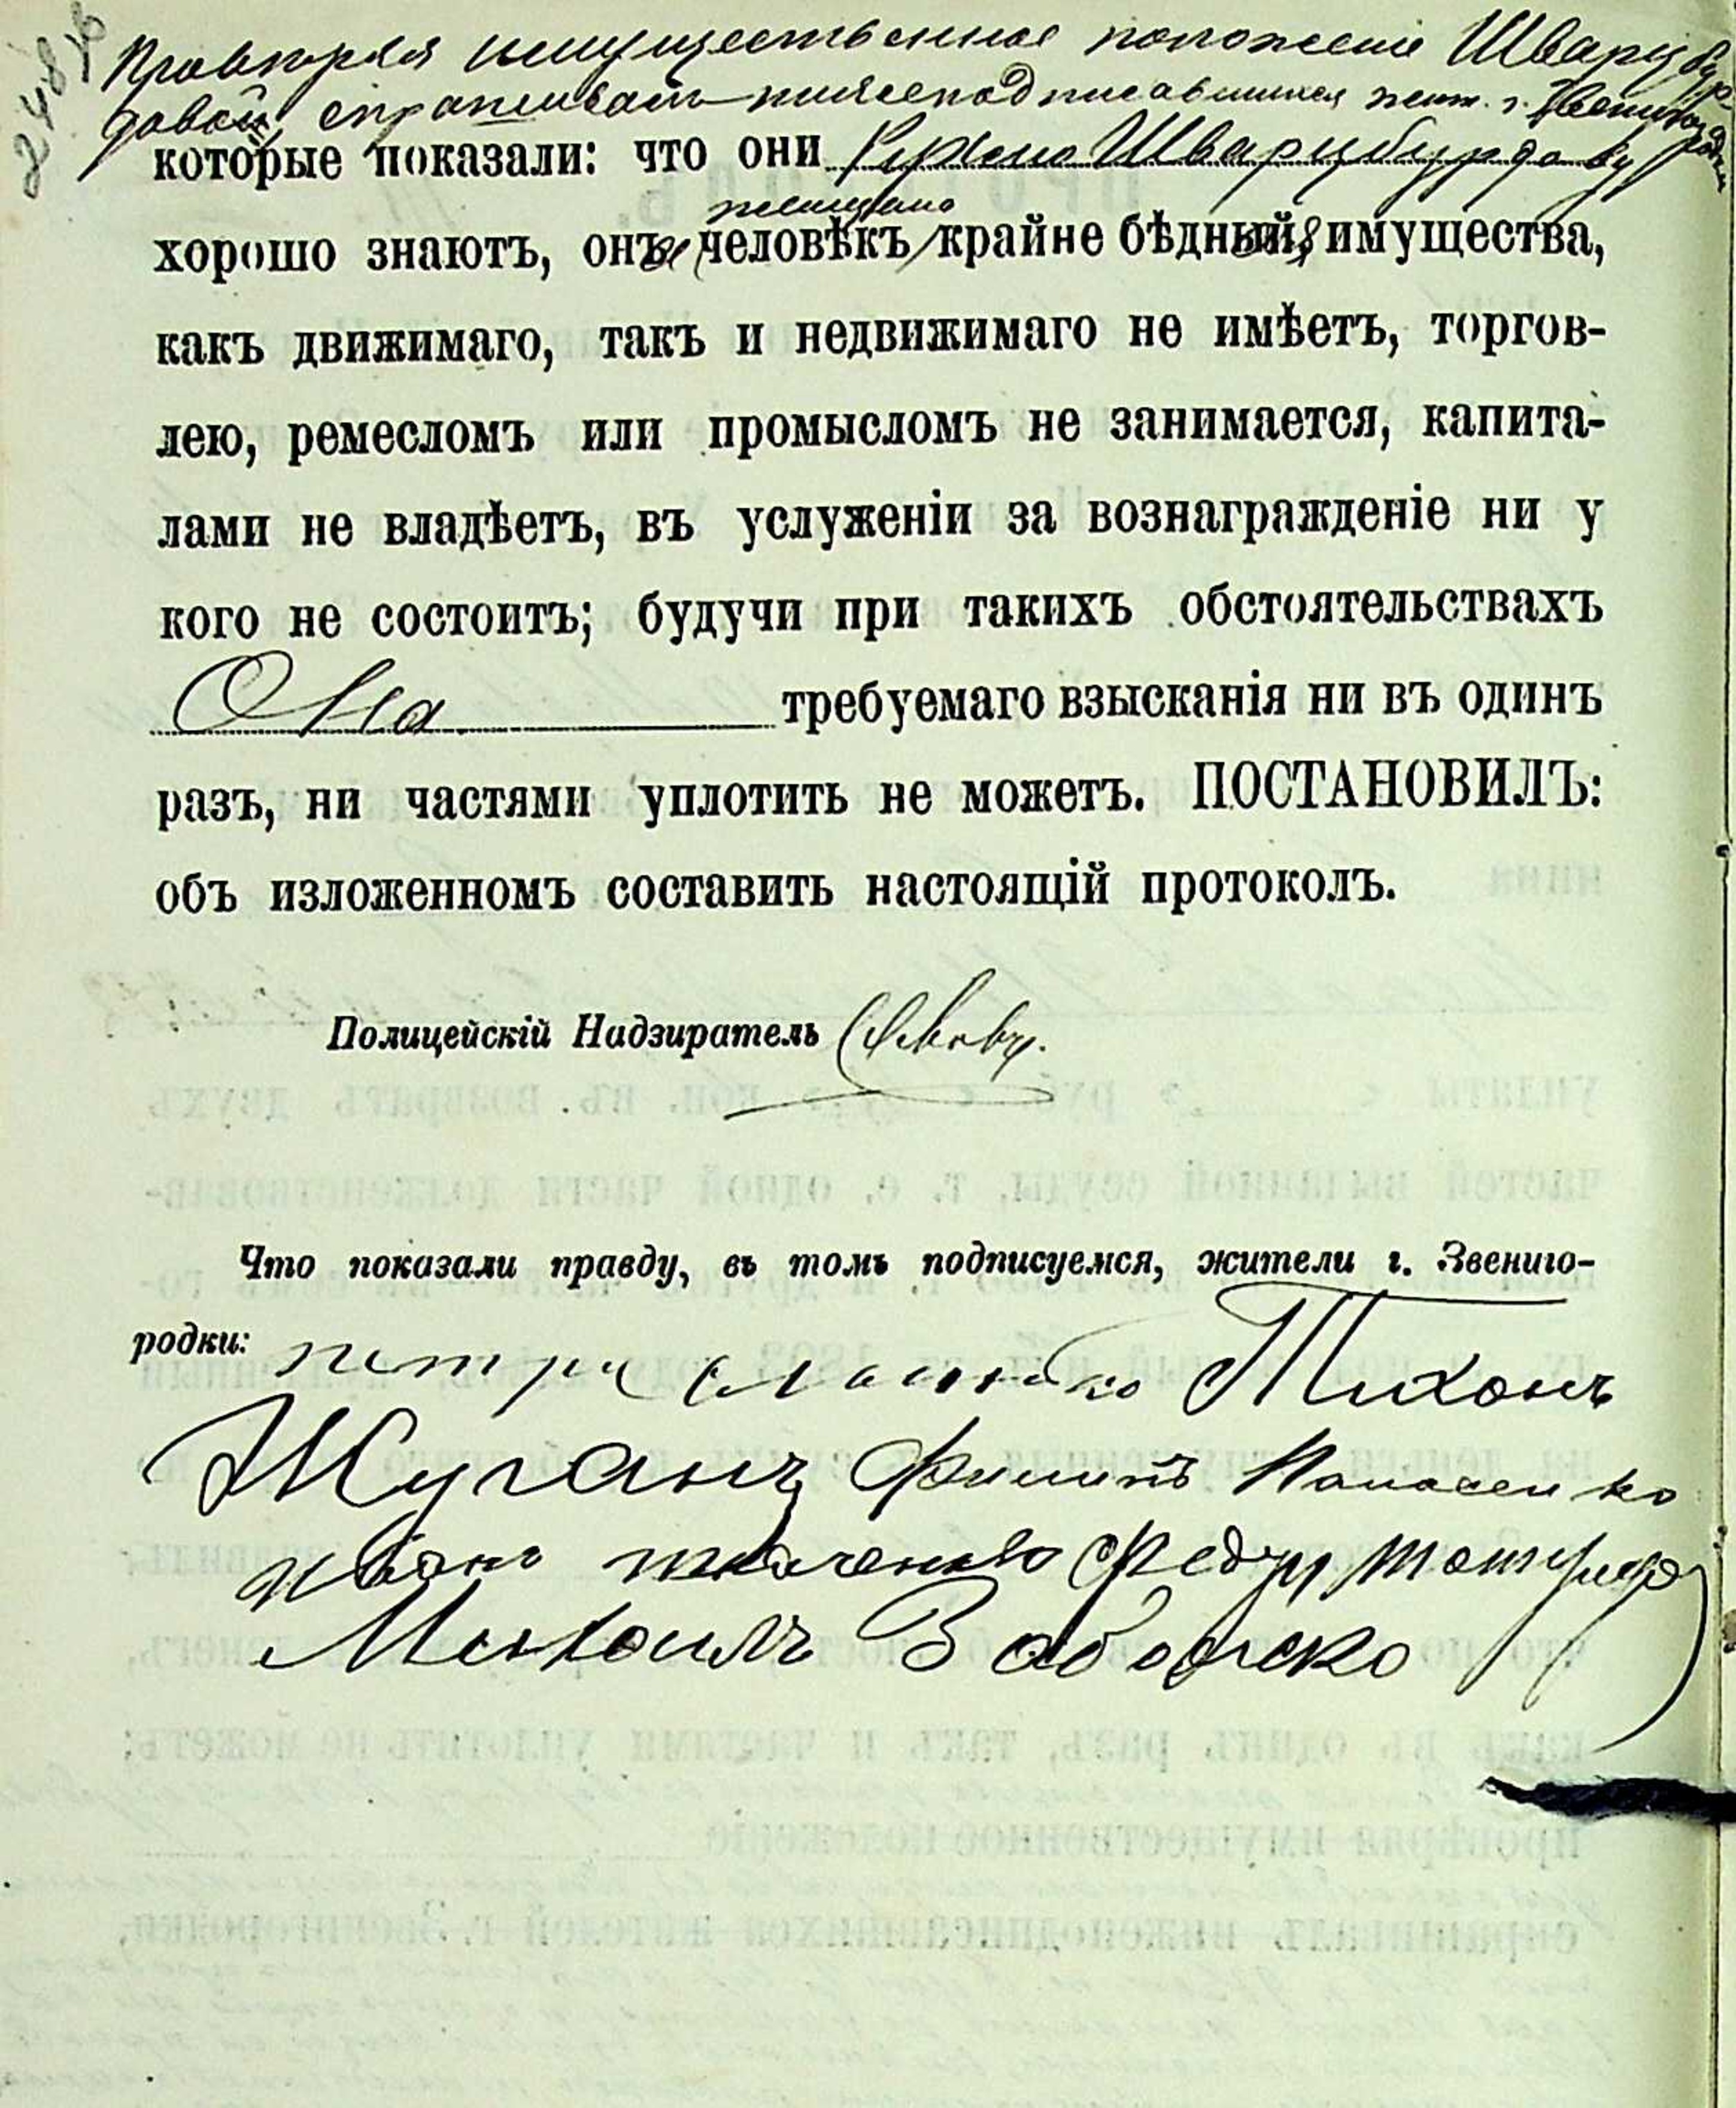 Провѣряя имущественное положеніе Шварцбур
довой, спрашивалъ нижеподписавшихся жит. г. Звенигородки
которые показали: что они Сухеню Шварцбурдову
женщина
хорошо знаютъ, она человѣкъ крайне бѣдный, имущества,
какъ движимаго, такъ и недвижимаго не имѣетъ, торгов-
лею, ремесломъ или промысломъ не занимается, капита-
лами не владѣетъ, въ услуженіи за вознагражденіе ни у
кого не состоитъ; будучи при такихъ обстоятельствахъ
Она требуемаго взысканія ни въ одинъ
разъ, ни частями уплотить не можетъ. ПОСТАНОВИЛЪ:
объ изложенномъ составить настоящій протоколъ.
Полицейскій Надзиратель
Что показали правду, въ томъ подписуемся, жители г. Звениго-
родки: петро Тихонъ
Жуганъ Филипъ Панасенко
Иванъ ткаченко Федур
Михаилъ